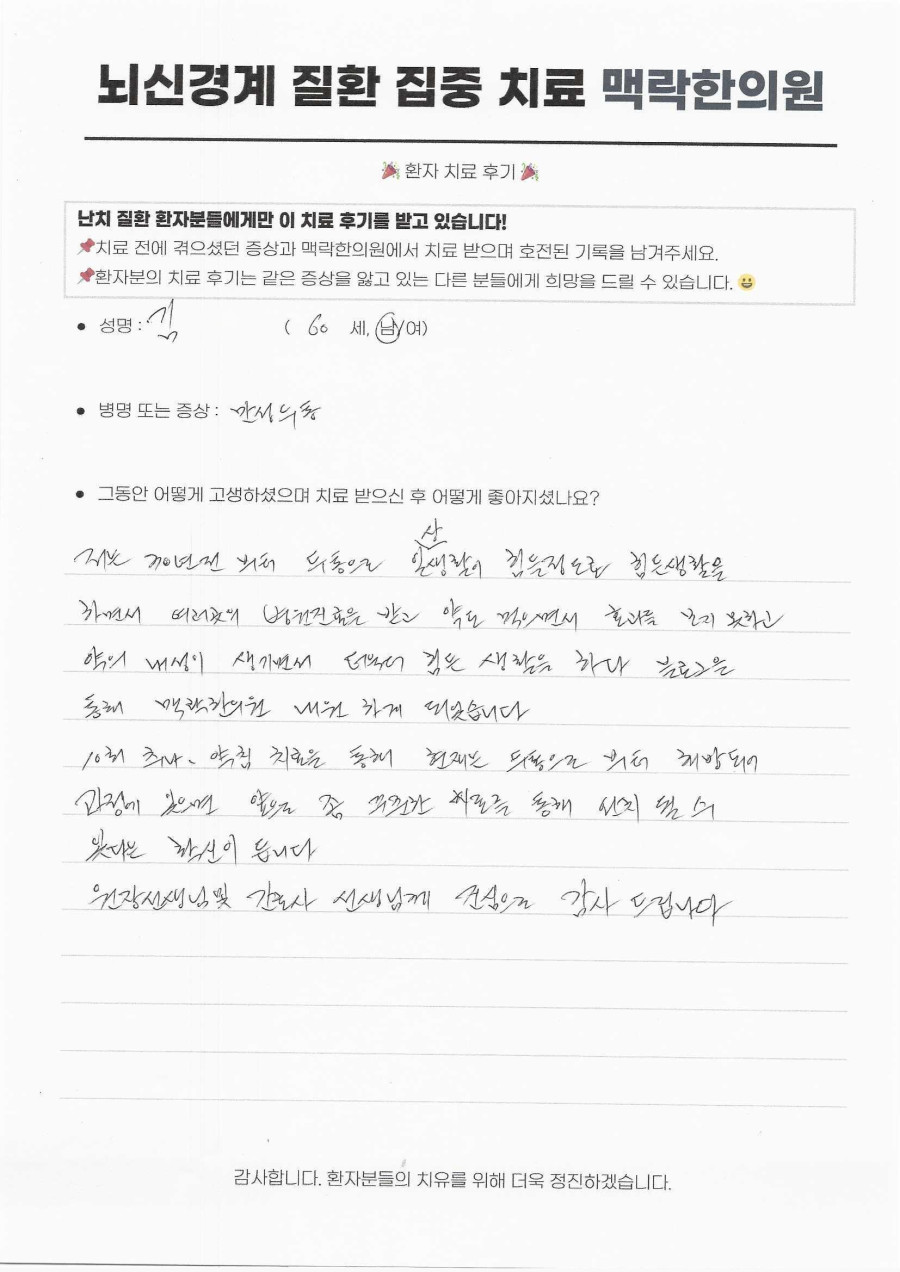 뇌신경계 질환 집중 치료 맥락한의원
🎉 환자 치료 후기 🎉
난치 질환 환자분들에게만 이 치료 후기를 받고 있습니다!
📌치료 전에 겪으셨던 증상과 맥락한의원에서 치료 받으며 호전된 기록을 남겨주세요.
📌환자분의 치료 후기는 같은 증상을 앓고 있는 다른 분들에게 희망을 드릴 수 있습니다. 😀
• 성명 : 김 ( 60 세, 남/여)
• 병명 또는 증상 : 만성두통
• 그동안 어떻게 고생하셨으며 치료 받으신 후 어떻게 좋아지셨나요?
저는 30년전 부터 두통으로 일상생활이 힘들정도로 힘든생활을
하면서 여러곳의 병원진료을 받고 약도 먹으면서 효과를 보지 못하고
약의 내성이 생기면서 더욱더 힘든 생활을 하다 블로그을
통해 맥락한의원 내원 하게 되었습니다
10회 추나、약침 치료을 통해 현재는 두통으로 부터 해방되어
과정에 있으며 앞으로 좀 꾸준한 치료를 통해 완치 될 수
있다는 확신이 듭니다
원장선생님및 간호사 선생님께 진심으로 감사 드립니다
감사합니다. 환자분들의 치유를 위해 더욱 정진하겠습니다.